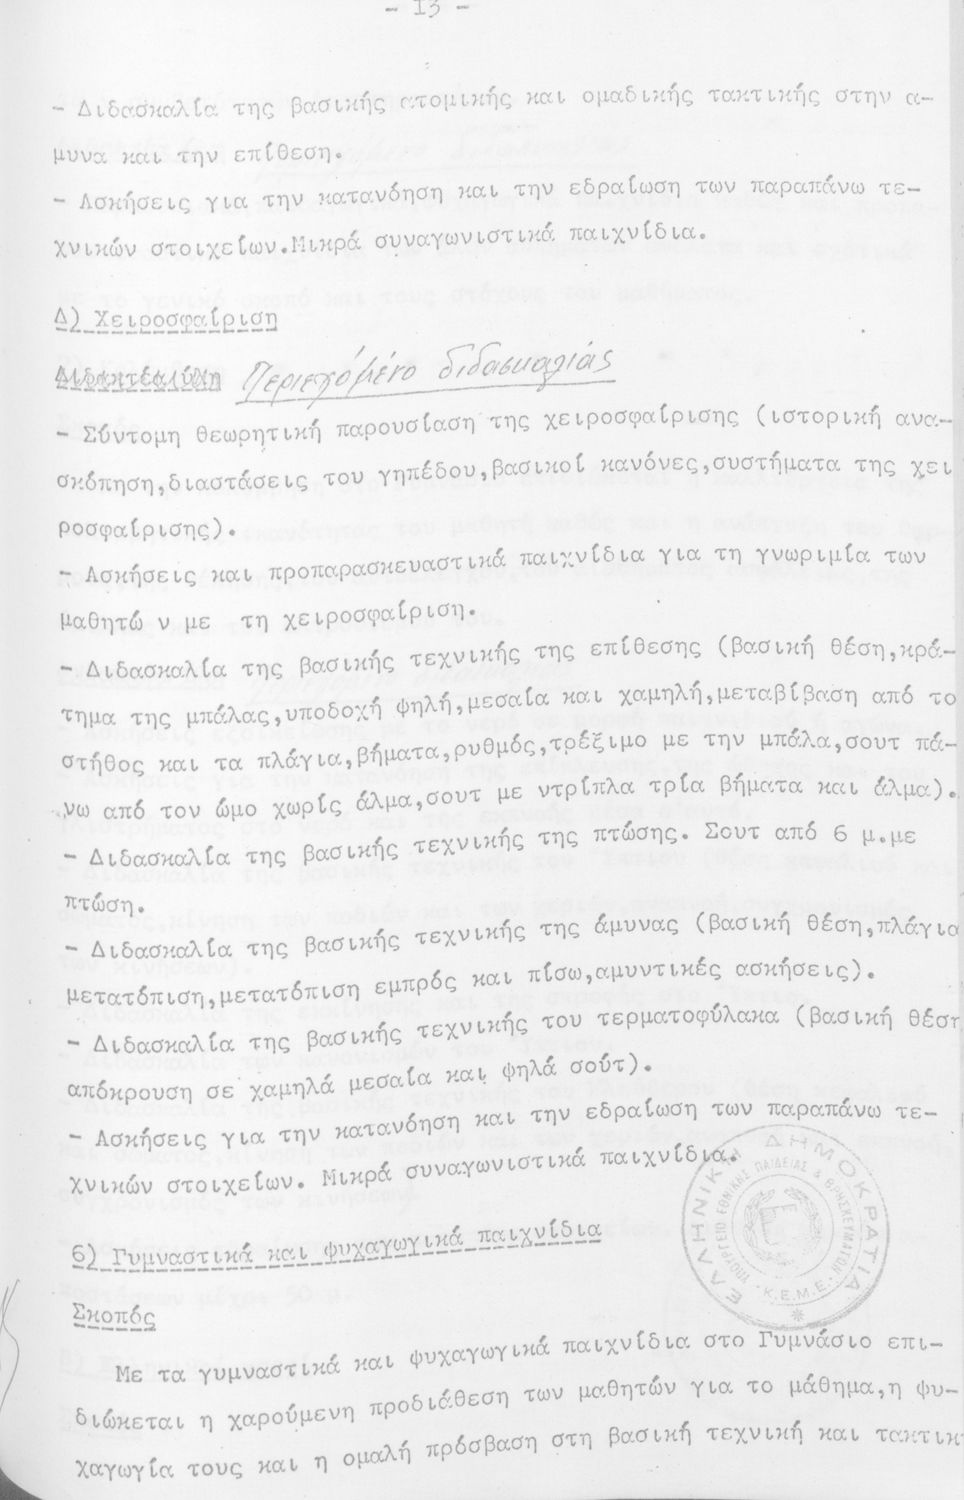 - 13 -
- Διδασκαλία της βασικής ατομικής και ομαδικής τακτικής στην α-
μυνα και την επίθεση.
- Ασκήσεις για την κατανόηση και την εδραίωση των παραπάνω τε-
χνικών στοιχείων.Μικρά συναγωνιστικά παιχνίδια.
Δ) Χειροσφαίριση
Διδακτέα ύλη Περιεχόμενο διδασκαλίας
- Σύντομη θεωρητική παρουσίαση της χειροσφαίρισης (ιστορική ανα-
σκόπηση,διαστάσεις του γηπέδου,βασικοί κανόνες,συστήματα της χει
ροσφαίρισης).
- Ασκήσεις και προπαρασκευαστικά παιχνίδια για τη γνωριμία των
μαθητώ ν με τη χειροσφαίριση.
- Διδασκαλία της βασικής τεχνικής της επίθεσης (βασική θέση,κρά-
τημα της μπάλας,υποδοχή ψηλή,μεσαία και χαμηλή,μεταβίβαση από το
στήθος και τα πλάγια,βήματα,ρυθμός,τρέξιμο με την μπάλα,σουτ πά-
νω από τον ώμο χωρίς άλμα,σουτ με ντρίπλα τρία βήματα και άλμα).
- Διδασκαλία της βασικής τεχνικής της πτώσης. Σουτ από 6 μ.με
πτώση.
- Διδασκαλία της βασικής τεχνικής της άμυνας (βασική θέση,πλάγια
μετατόπιση,μετατόπιση εμπρός και πίσω,αμυντικές ασκήσεις).
- Διδασκαλία της βασικής τεχνικής του τερματοφύλακα (βασική θέση
απόκρουση σε χαμηλά μεσαία και ψηλά σούτ).
- Ασκήσεις για την κατανόηση και την εδραίωση των παραπάνω τε-
χνικών στοιχείων. Μικρά συναγωνιστικά παιχνίδια.
ΕΛΛΗΝΙΚΗ ΔΗΜΟΚΡΑΤΙΑ
ΥΠΟΥΡΓΕΙΟ ΕΘΝΙΚΗΣ ΠΑΙΔΕΙΑΣ & ΘΡΗΣΚΕΥΜΑΤΩΝ
Κ.Ε.Μ.Ε.
6) Γυμναστικά και ψυχαγωγικά παιχνίδια
Σκοπός
Με τα γυμναστικά και ψυχαγωγικά παιχνίδια στο Γυμνάσιο επι-
διώκεται η χαρούμενη προδιάθεση των μαθητών για το μάθημα,η ψυ-
χαγωγία τους και η ομαλή πρόσβαση στη βασική τεχνική και τακτικ